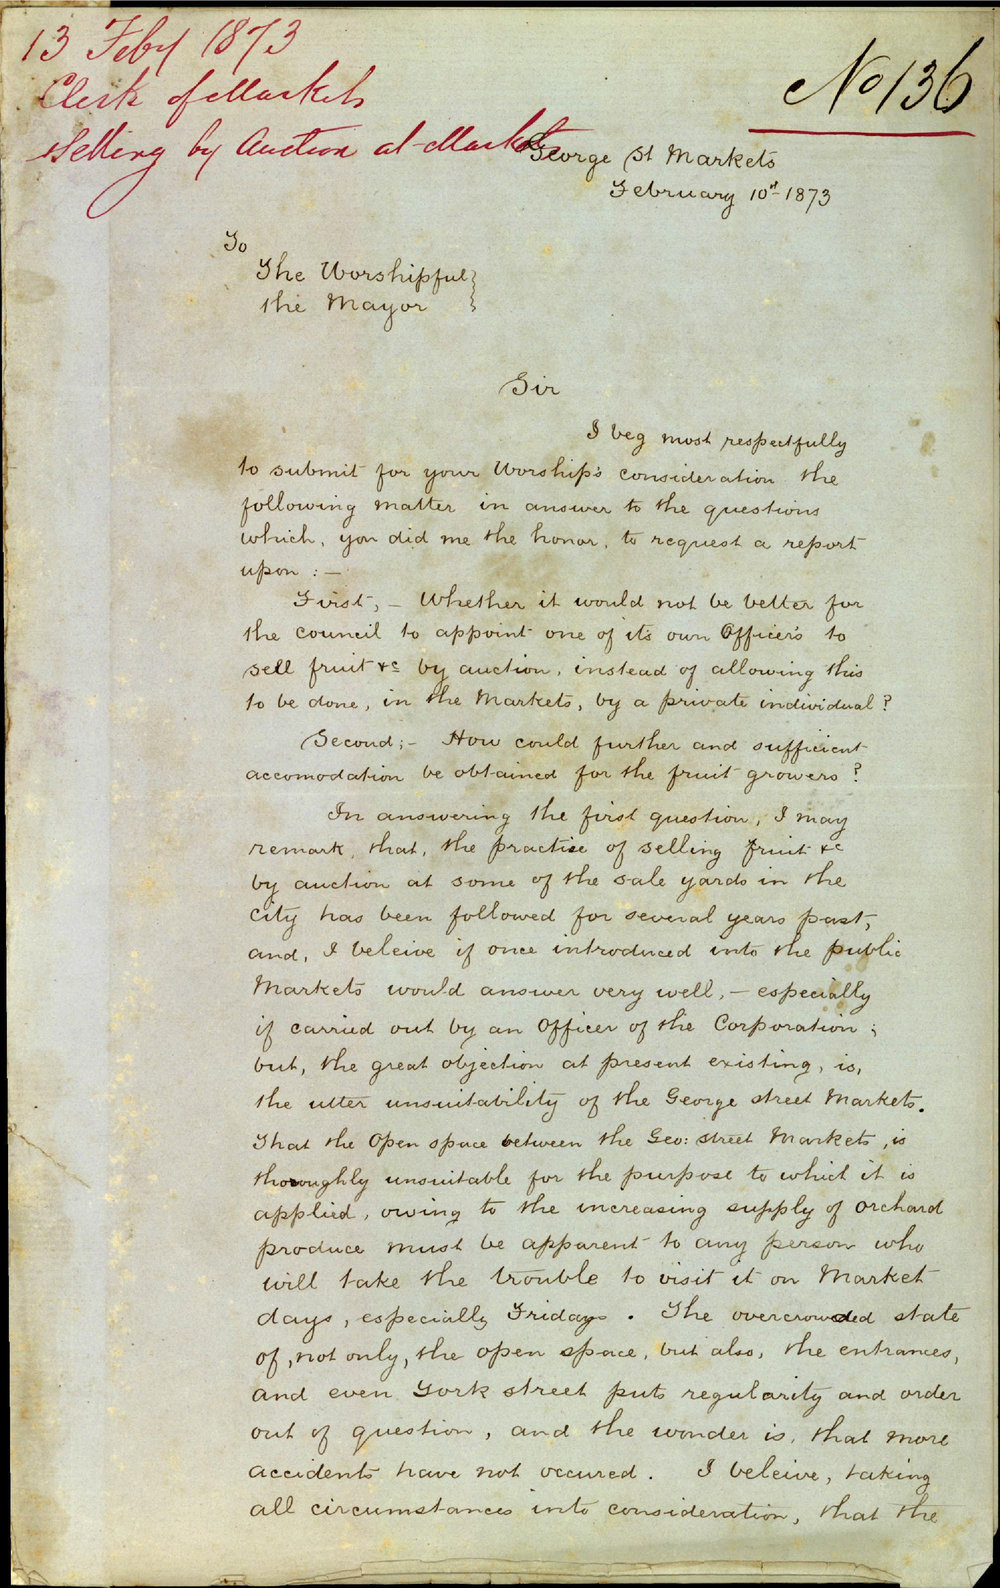 13 Feby 1873
Clerk of Markets
Selling by Auction at Markets
No 136
George St Markets
February 10th 1873
To
The Worshipful
the Mayor
Sir
I beg most respectfully
to submit for your Worship's consideration the
following matter in answer to the questions
which, you did me the honor, to request a report
upon : —
First, — Whether it would not be better for
the council to appoint one of its own Officer's to
sell fruit &c by auction, instead of allowing this
to be done, in the Markets, by a private individual?
Second; — How could further and sufficient
accomodation be obtained for the fruit growers?
In answering the first question, I may
remark, that, the practise of selling fruit &c
by auction at some of the sale yards in the
city has been followed for several years past,
and, I beleive if once introduced into the public
Markets would answer very well, — especially
if carried out by an Officer of the Corporation;
but, the great objection at present existing, is,
the utter unsuitability of the George street Markets.
That the Open space between the Geo: street Markets, is
thoroughly unsuitable for the purpose to which it is
applied, owing to the increasing supply of orchard
produce must be apparent to any person who
will take the trouble to visit it on Market
days, especially Fridays. The overcrowded state
of, not only, the open space, but also, the entrances,
and even York street puts regularity and order
out of question, and the wonder is, that more
accidents have not occured. I beleive, taking
all circumstances into consideration, that the